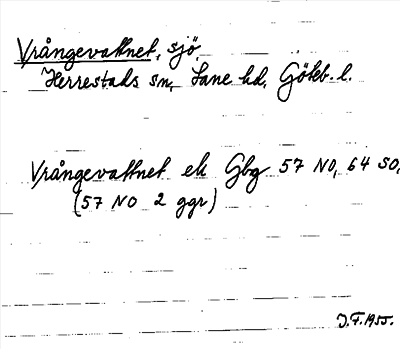 Vrångevattnet, sjö
Herrestads sn, Lane hd, Göteb. l.
Vrångevattnet ek Gbg 57 NO, 64 SO,
(57 NO 2 ggr)
J.F. 1955.